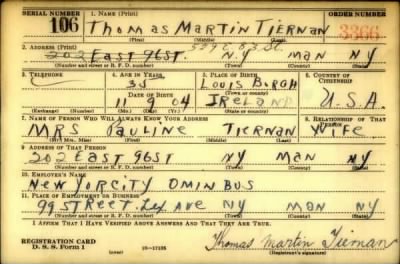 SERIAL NUMBER 1. NAME (Print) ORDER NUMBER
106 Thomas Martin Tiernan 3366
(First) (Middle) (Last)
2. ADDRESS (Print)
202 East 96 St. NY Man NY
(Number and street or R. F. D. number) (Town) (County) (State)
3. TELEPHONE 4. AGE IN YEARS 5. PLACE OF BIRTH 6. COUNTRY OF CITIZENSHIP
35 Louis Burgh
DATE OF BIRTH (Town or county)
11 9 04 Ireland U.S.A.
(Exchange) (Number) (Mo.) (Day) (Yr.) (State or country)
7. NAME OF PERSON WHO WILL ALWAYS KNOW YOUR ADDRESS 8. RELATIONSHIP OF THAT PERSON
Mrs Pauline Tiernan Wife
(Mr., Mrs., Miss) (First) (Middle) (Last)
9. ADDRESS OF THAT PERSON
202 East 96St NY Man NY
(Number and street or R. F. D. number) (Town) (County) (State)
10. EMPLOYER'S NAME
New YorCity Omin Bus
11. PLACE OF EMPLOYMENT OR BUSINESS
99 Street. Lex Ave NY Man NY
(Number and street or R. F. D. number) (Town) (County) (State)
I AFFIRM THAT I HAVE VERIFIED ABOVE ANSWERS AND THAT THEY ARE TRUE.
REGISTRATION CARD
D. S. S. Form 1 (over) 16-17105 Thomas Martin Tiernan
(Registrant's signature)